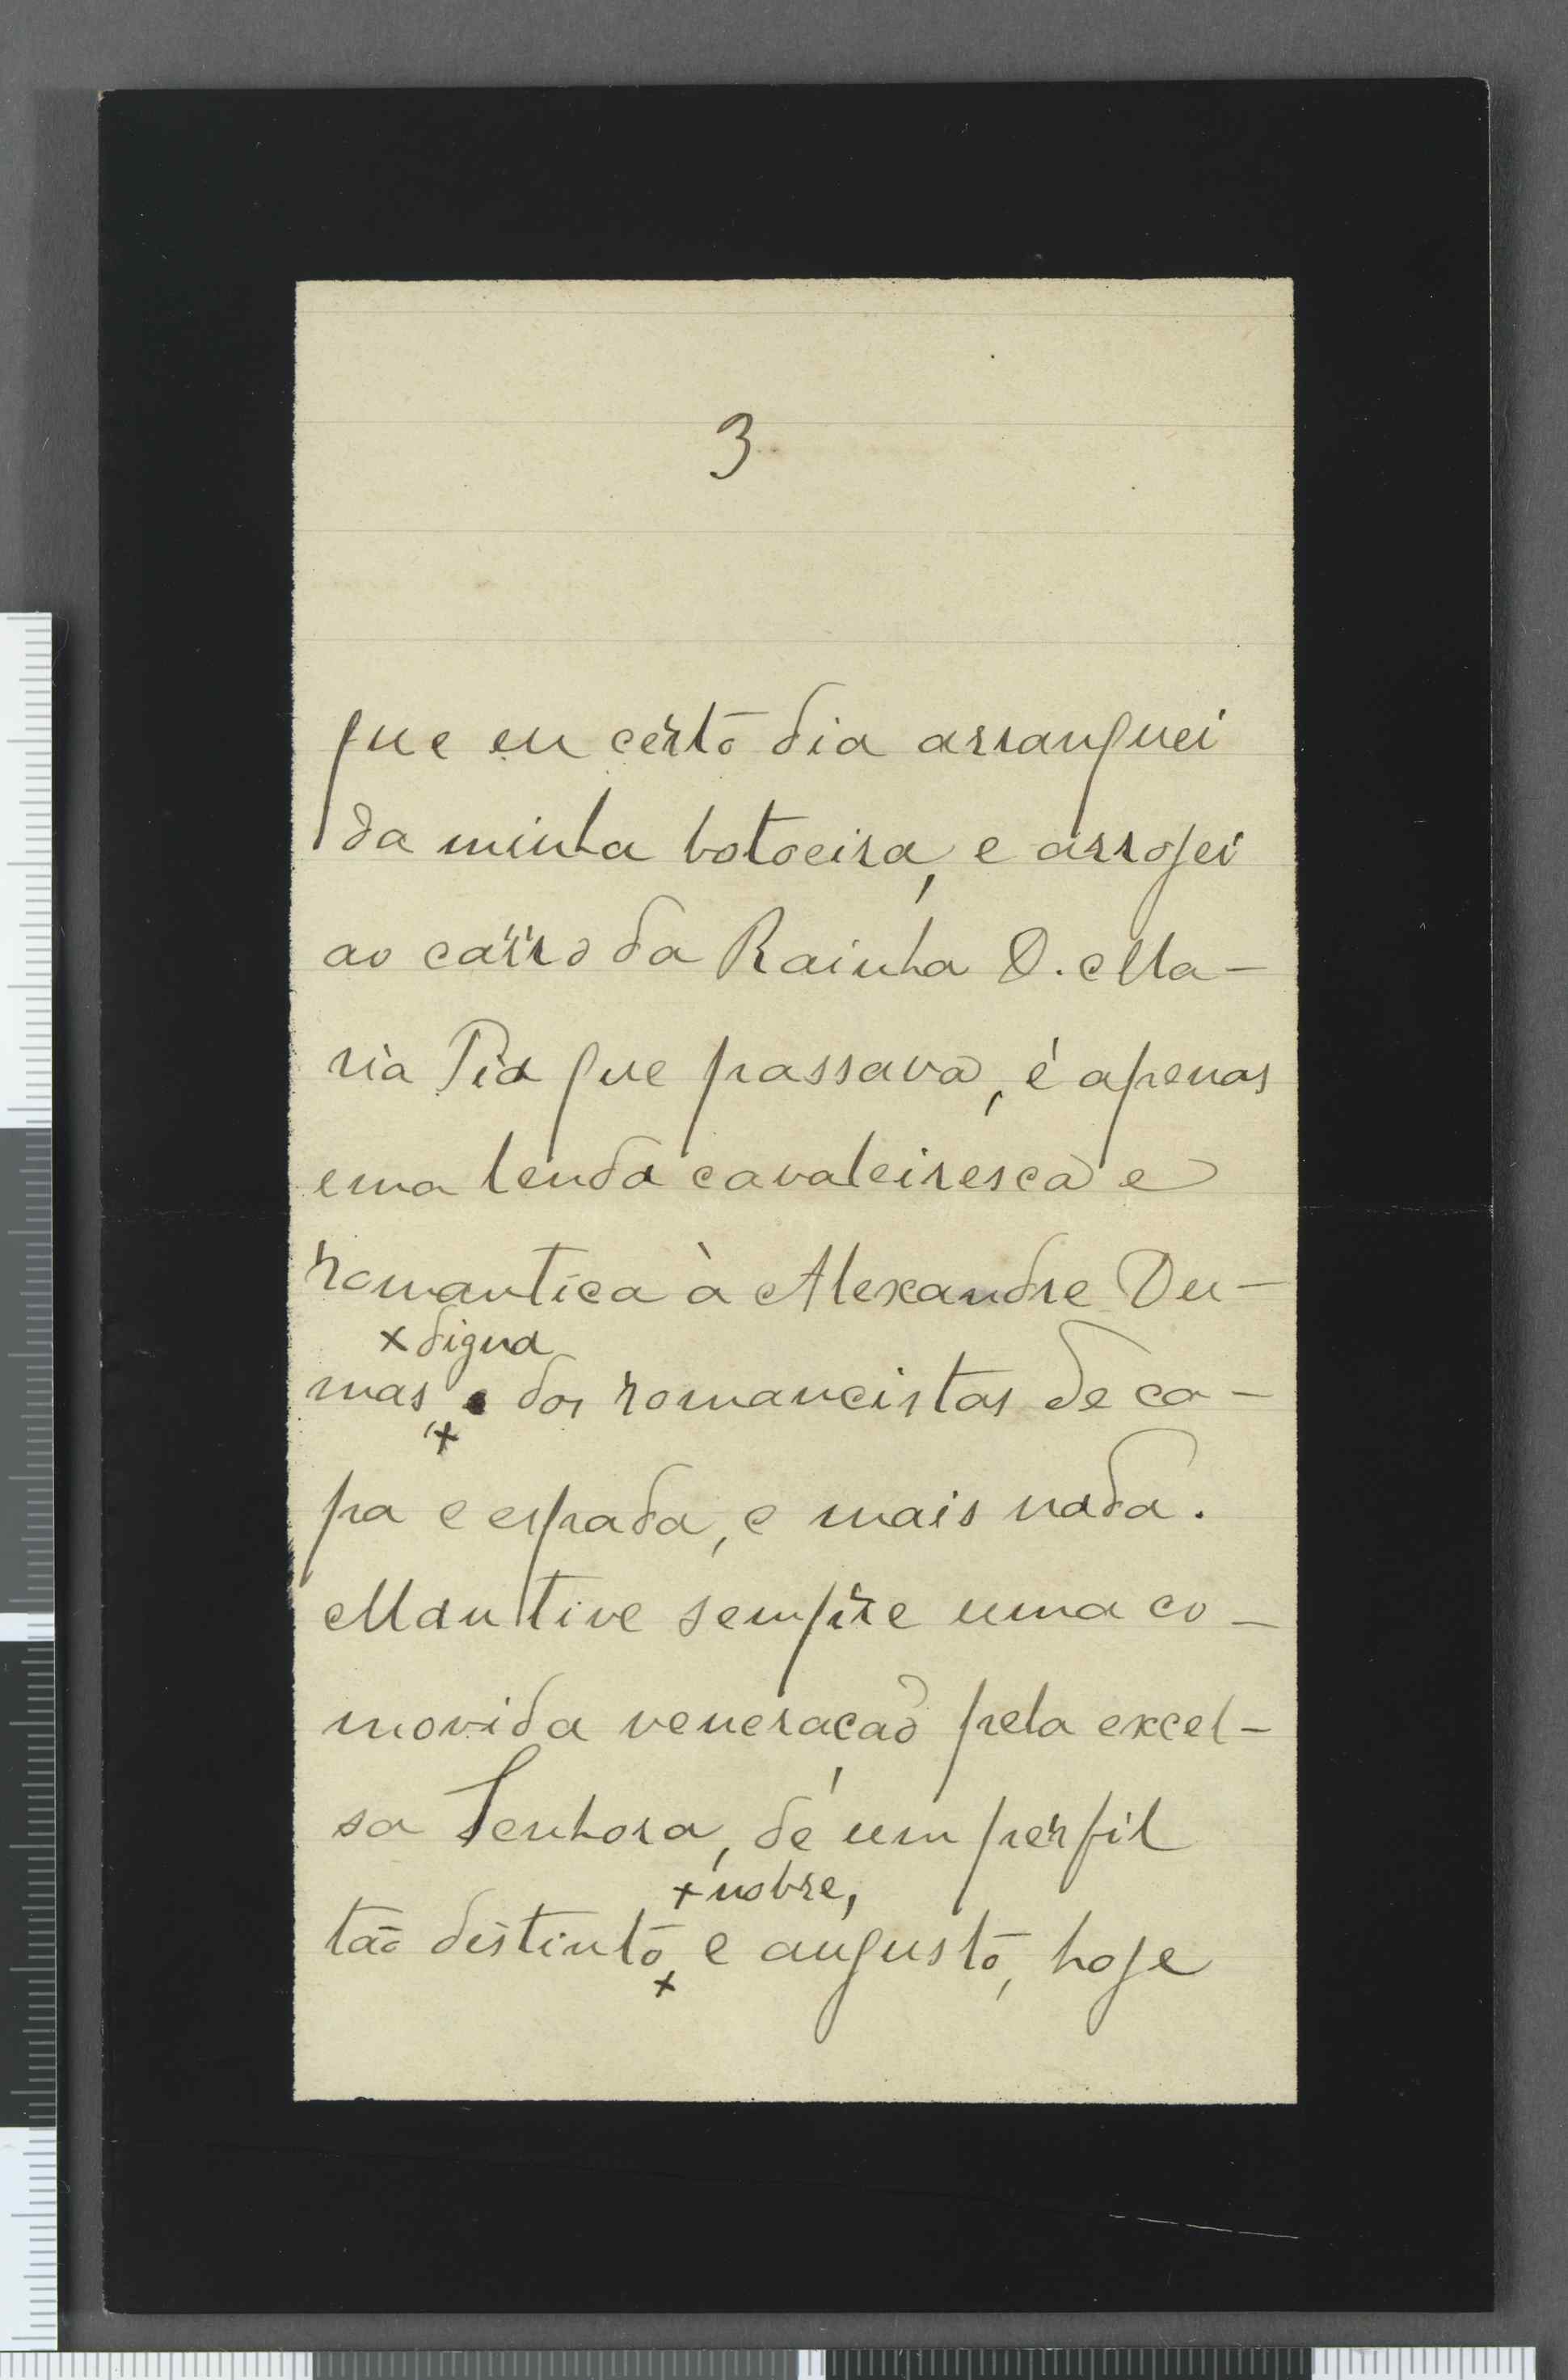 3
que eu certo dia arranquei
da minha botoeira, e arrojei
ao carro da Rainha D. Ma-
ria Pia que passava, é apenas
uma lenda cavaleiresca e
romantica à Alexandre Du-
x digna
mas, x dos romancistas de ca-
pa e espada, e mais nada.
Mantive sempre uma co-
movida veneração pela excel-
sa Senhora, de um perfil
x nobre,
tão distinto, x e augusto, hoje